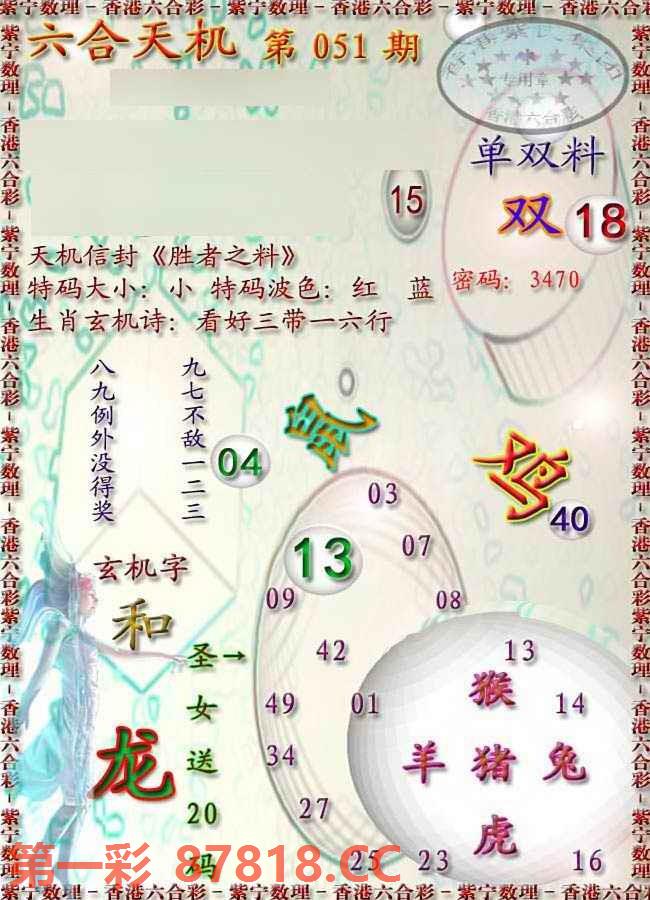 紫宁数理－香港六合彩－紫宁数理－香港六合彩－紫宁数理
六合天机 第 051 期
专用章
香港六合彩
单双料
15
双 18
天机信封《胜者之料》
特码大小：小 特码波色：红 蓝 密码：3470
生肖玄机诗：看好三带一六行
八九例外没得奖
九七不敌一二三
04
鼠
鸡
40
03
13
07
09
08
玄机字
和
圣→
女
送
20
码
龙
42
13
49
01
猴
14
34
羊 猪 兔
27
虎
25
23
16
第一彩 87818.CC
紫宁数理－香港六合彩－紫宁数理－香港六合彩－紫宁数理